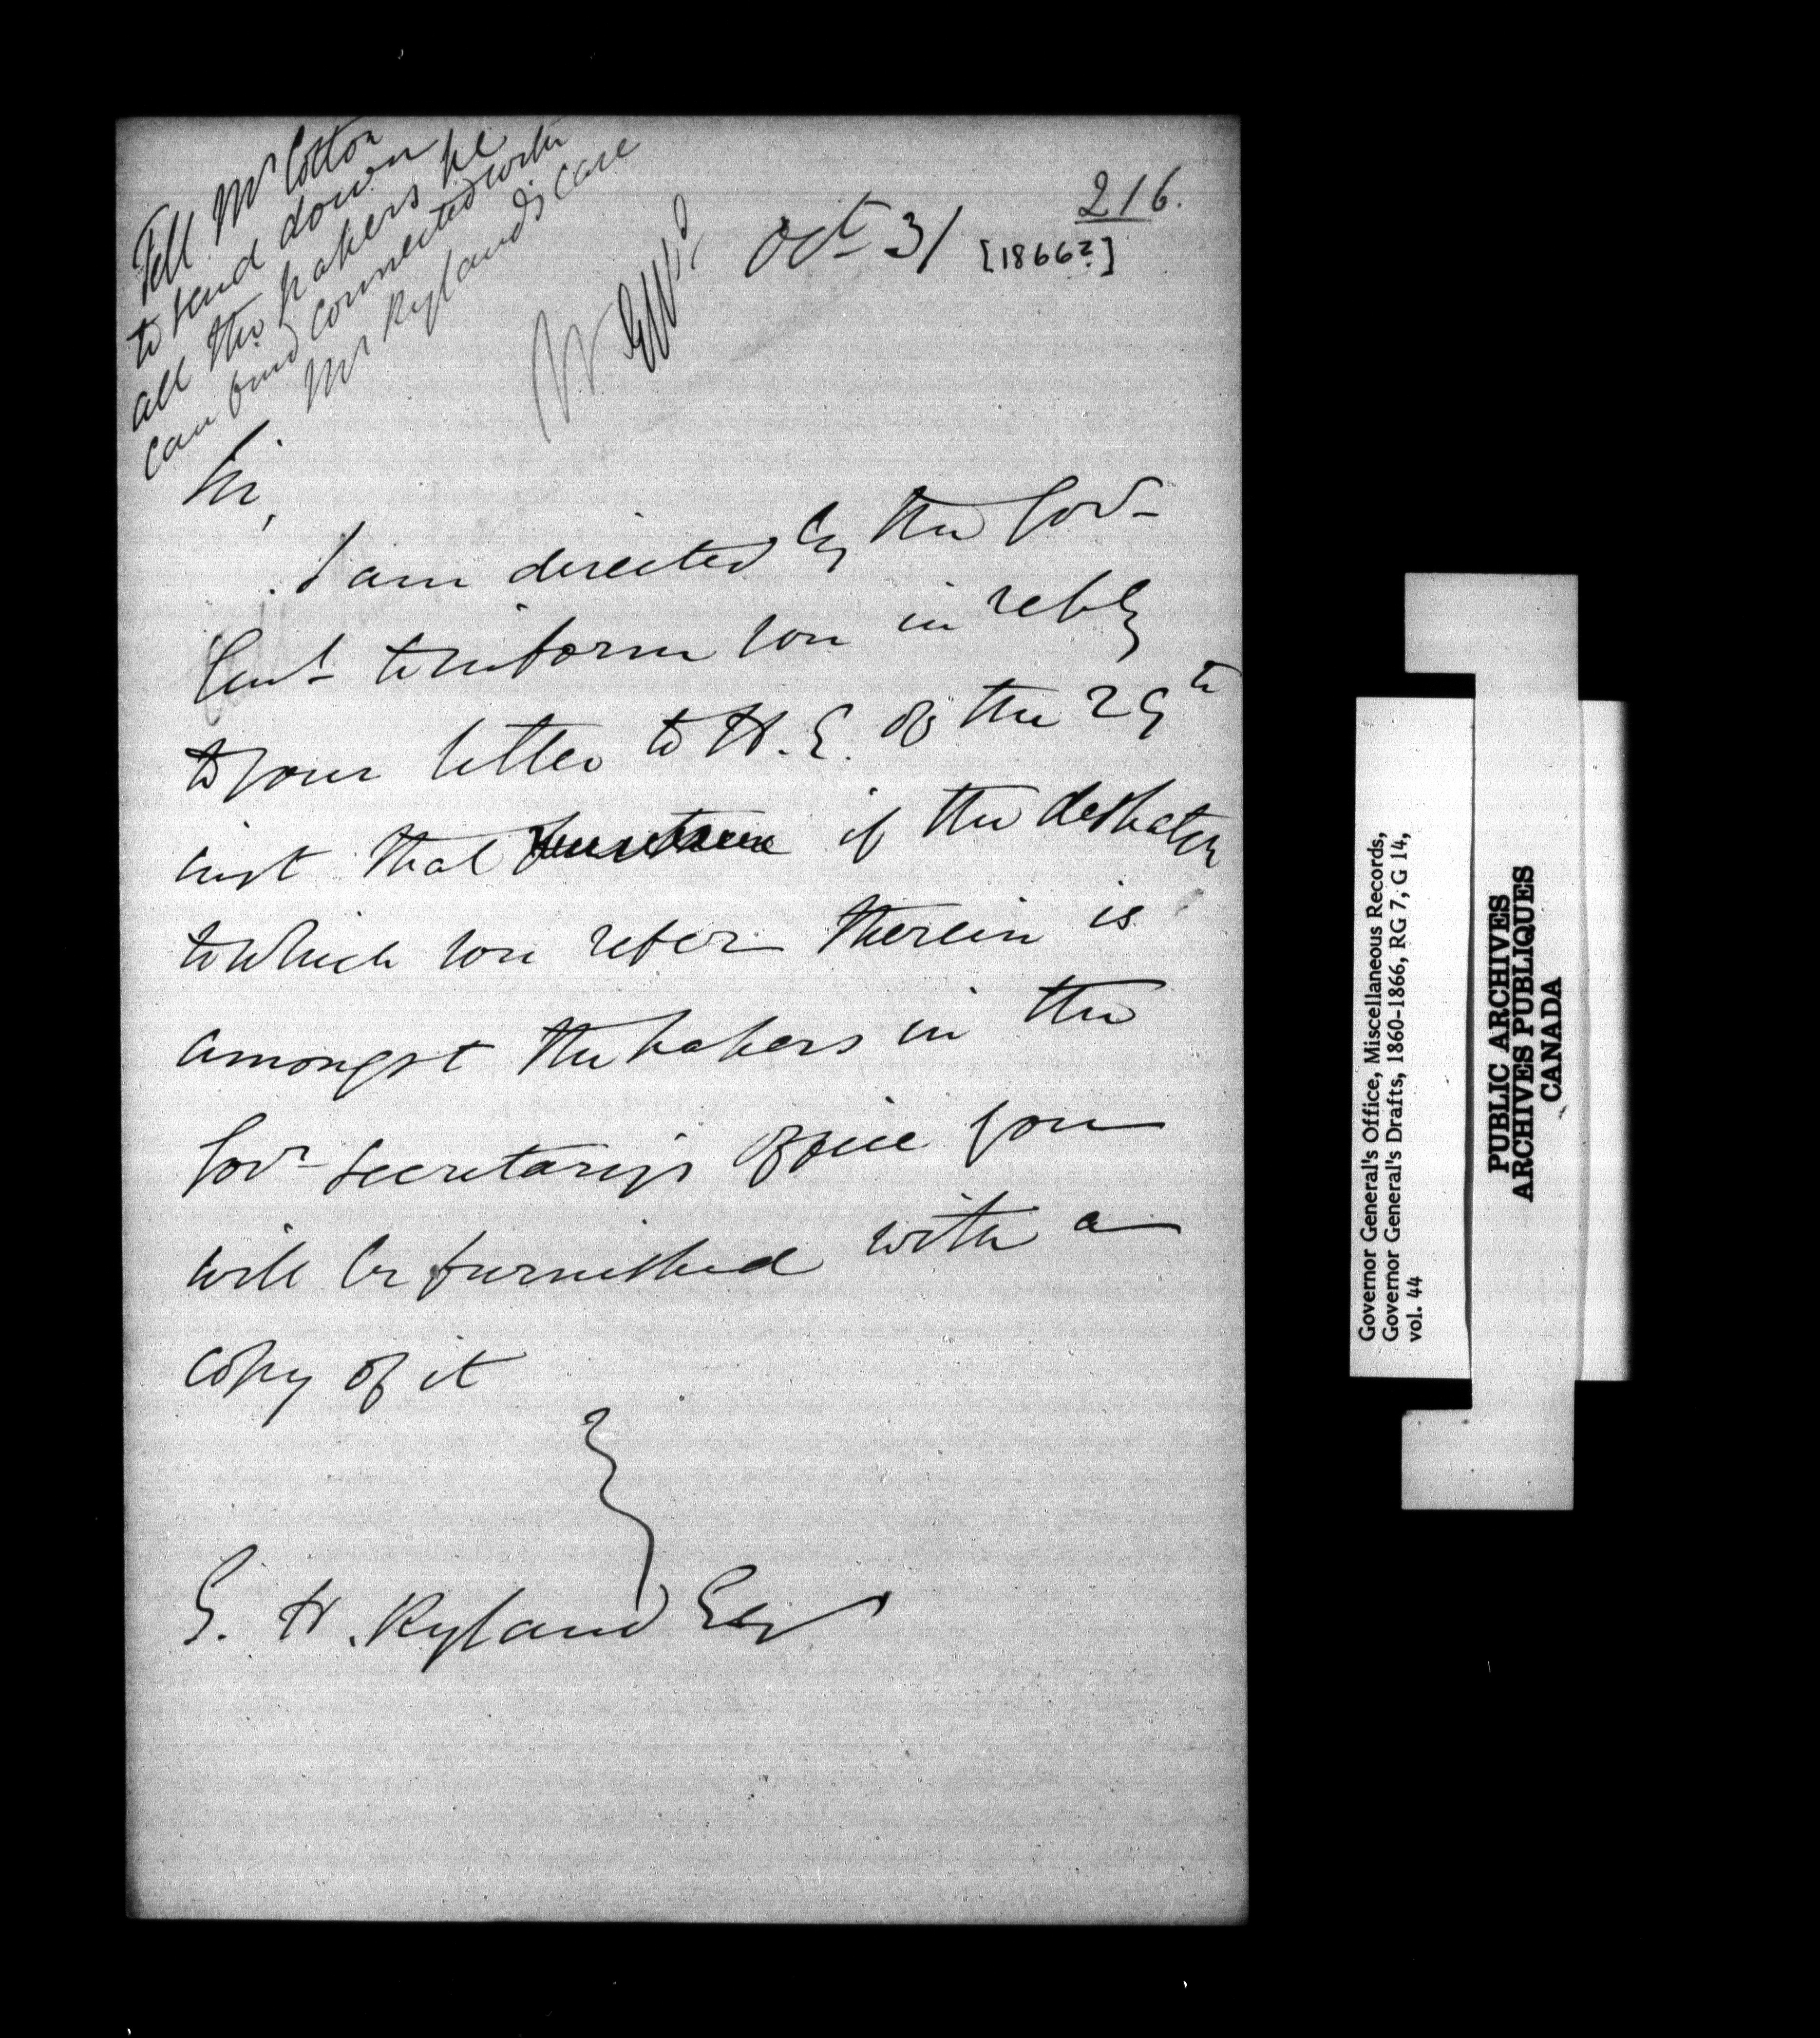 Tell Mr Cotton
to send down
all the papers he
can find connected with
Mr Ryland's case
216.
Oct 31
[1866?]
Sir,
I am directed by the Gov-
Genl to inform you in reply
to your letter to H. E. of the 29th
inst that if the despatch
to which you refer therein is
amongst the papers in the
Govr Secretary's office you
will be furnished with a
copy of it
G. H. Ryland Esq
Governor General's Office, Miscellaneous Records,
Governor General's Drafts, 1860-1866, RG 7, G 14,
vol. 44
PUBLIC ARCHIVES
ARCHIVES PUBLIQUES
CANADA